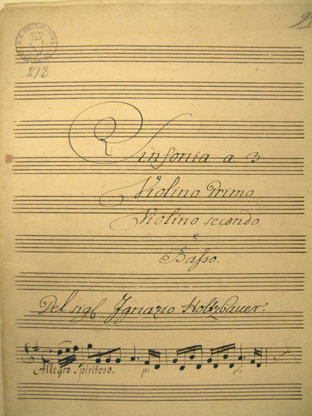 212
Sinfonia a 3
Violino Primo
Violino secondo
e
Basso.
Del sigʳ Ignazio Holtzbauer.
Allegro Spiritoso.